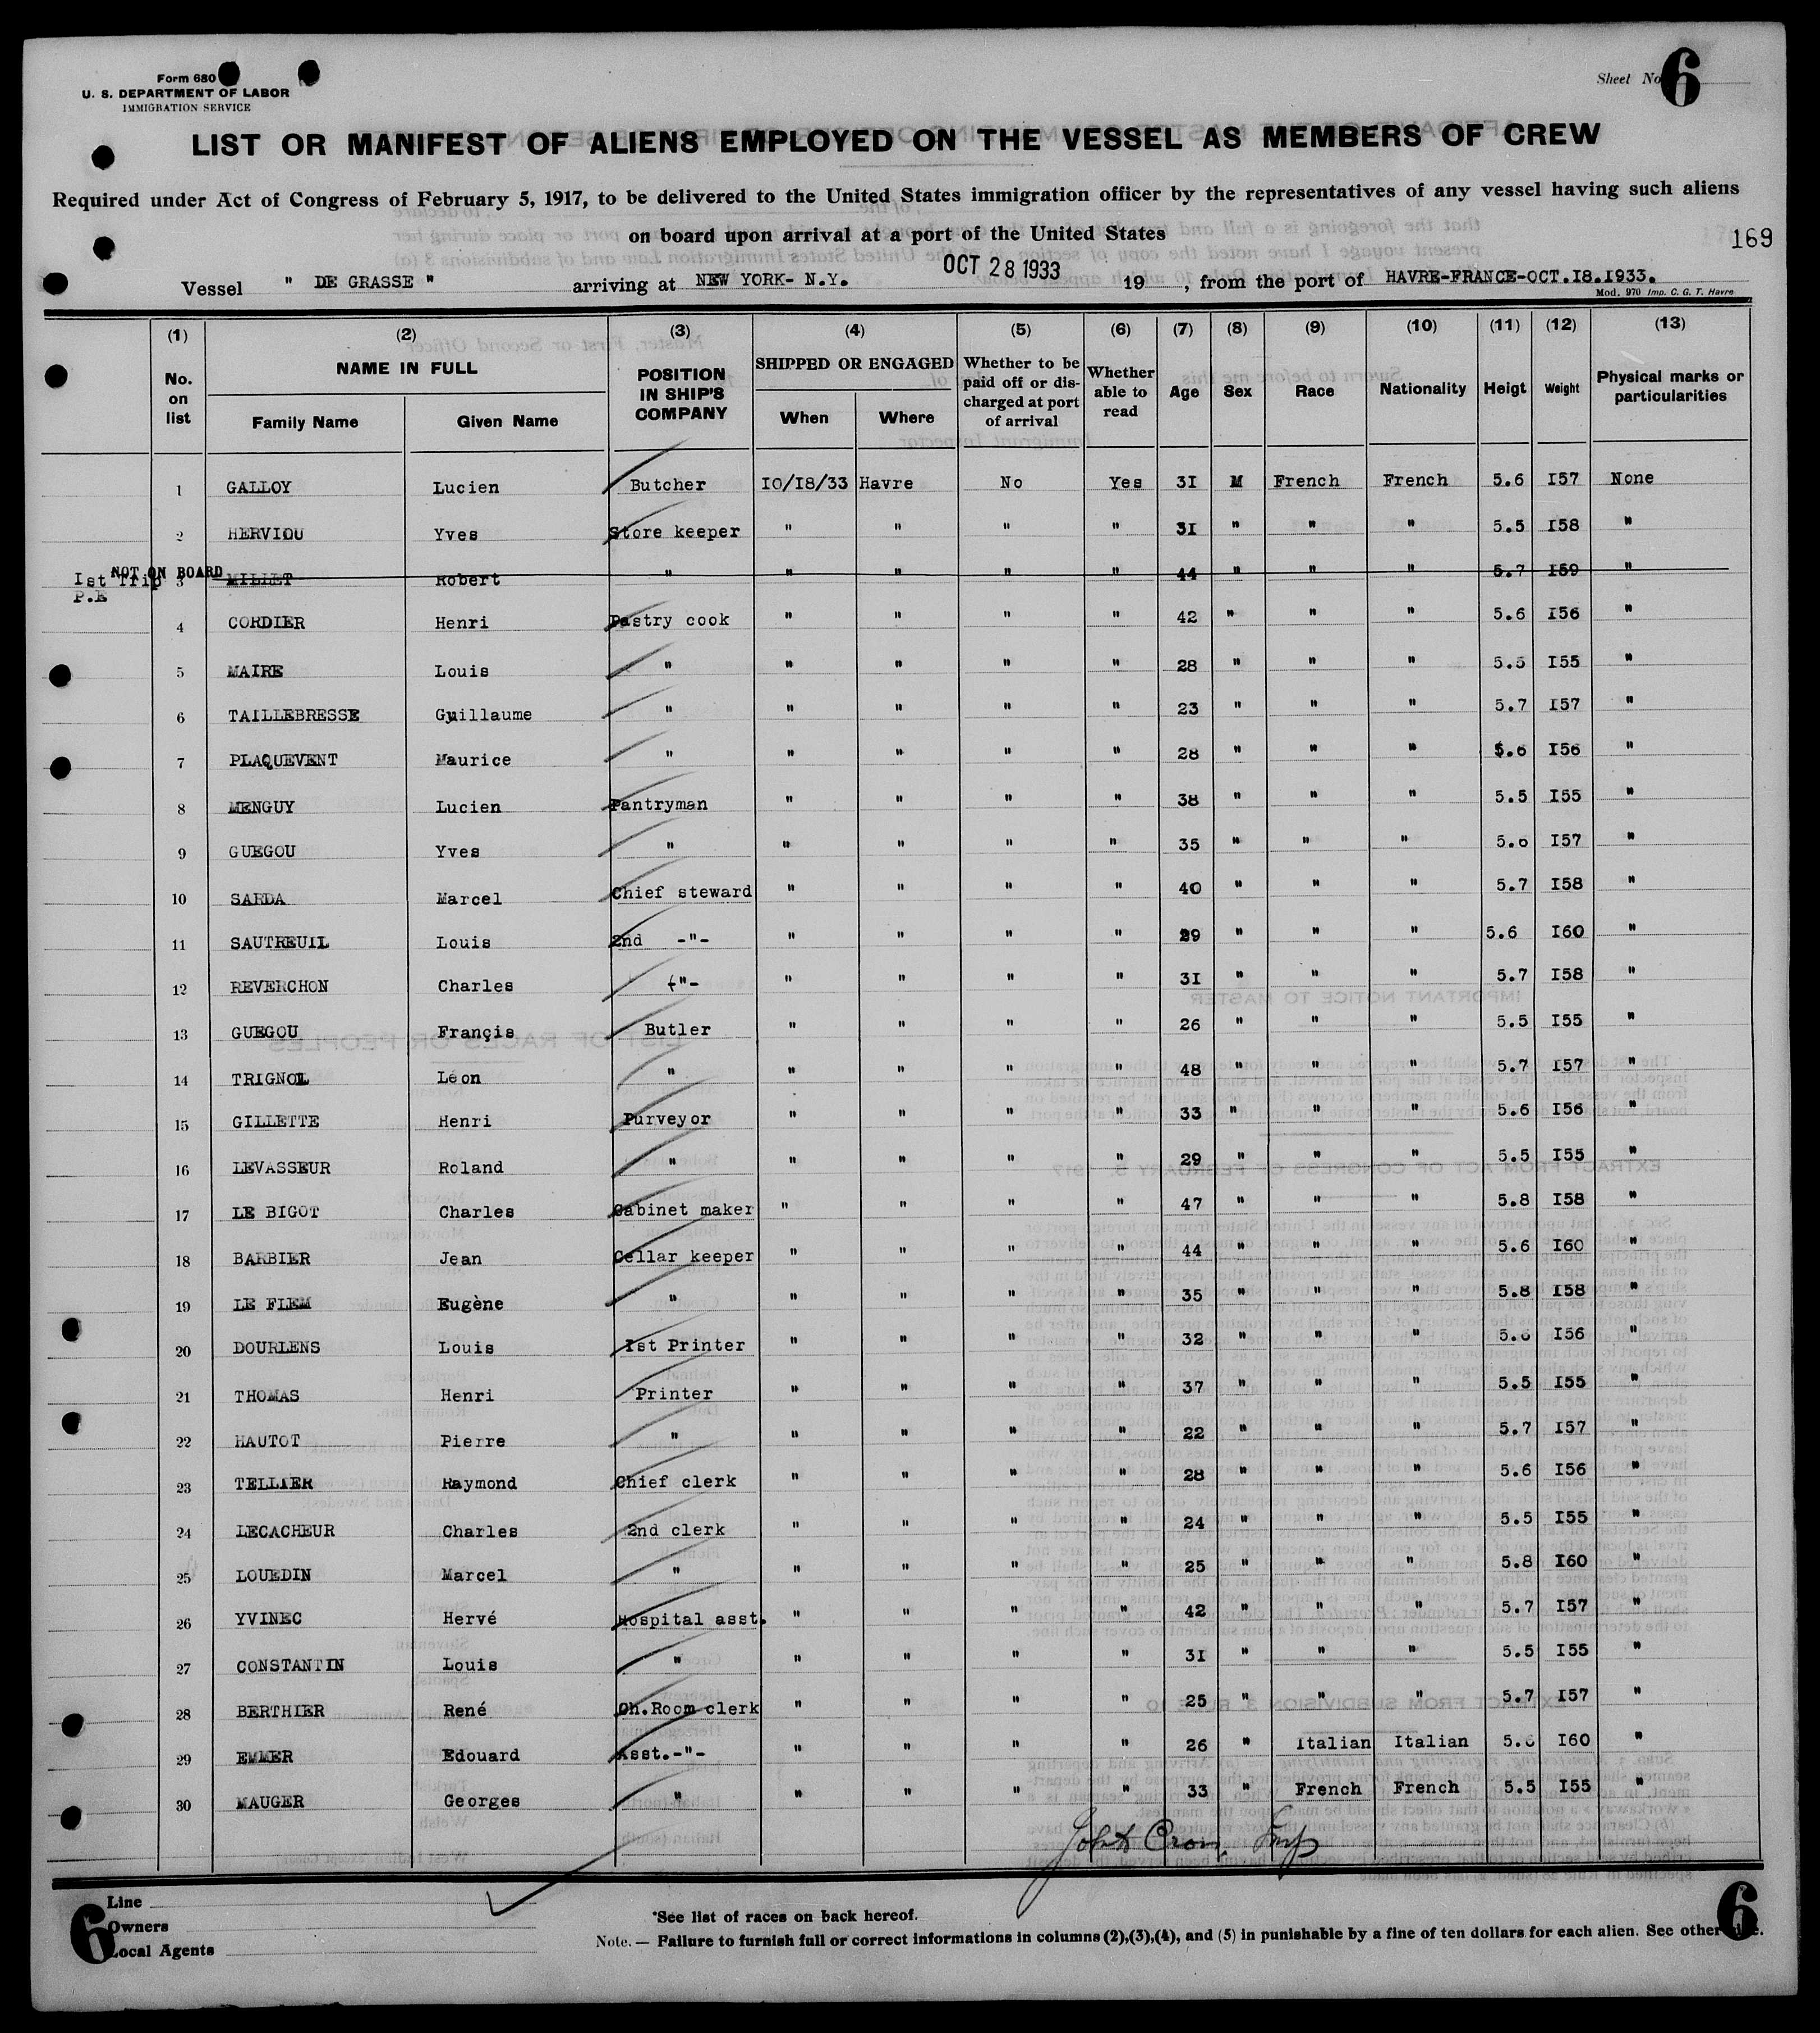 Form 680
U. S. DEPARTMENT OF LABOR
IMMIGRATION SERVICE
Sheet No 6
LIST OR MANIFEST OF ALIENS EMPLOYED ON THE VESSEL AS MEMBERS OF CREW
Required under Act of Congress of February 5, 1917, to be delivered to the United States immigration officer by the representatives of any vessel having such aliens
on board upon arrival at a port of the United States
169
Vessel " DE GRASSE " arriving at NEW YORK- N.Y. OCT 28 1933 19 , from the port of HAVRE-FRANCE-OCT.I8.I933.
Mod. 970 Imp. C. G. T. Havre
(1) (2) (3) (4) (5) (6) (7) (8) (9) (10) (11) (12) (13)
No. on list NAME IN FULL Family Name Given Name POSITION IN SHIP'S COMPANY SHIPPED OR ENGAGED When Where Whether to be paid off or discharged at port of arrival Whether able to read Age Sex Race Nationality Heigt Weight Physical marks or particularities
1 GALLOY Lucien Butcher IO/I8/33 Havre No Yes 3I M French French 5.6 I57 None
2 HERVIOU Yves Store keeper " " " " 3I " " " 5.5 I58 "
NOT ON BOARD
Ist Trip 3 MILLET Robert " " " " " 44 " " " 5.7 I59 "
P.E
4 CORDIER Henri Pastry cook " " " " 42 " " " 5.6 I56 "
5 MAIRE Louis " " " " " 28 " " " 5.5 I55 "
6 TAILLEBRESSE Guillaume " " " " " 23 " " " 5.7 I57 "
7 PLAQUEVENT Maurice " " " " " 28 " " " 5.6 I56 "
8 MENGUY Lucien Pantryman " " " " 38 " " " 5.5 I55 "
9 GUEGOU Yves " " " " " 35 " " " 5.6 I57 "
10 SARDA Marcel Chief steward " " " " 40 " " " 5.7 I58 "
11 SAUTREUIL Louis 2nd -"- " " " " 29 " " " 5.6 I60 "
12 REVERCHON Charles -"- " " " " 3I " " " 5.7 I58 "
13 GUEGOU Françis Butler " " " " 26 " " " 5.5 I55 "
14 TRIGNOL Léon " " " " " 48 " " " 5.7 I57 "
15 GILLETTE Henri Purveyor " " " " 33 " " " 5.6 I56 "
16 LEVASSEUR Roland " " " " " 29 " " " 5.5 I55 "
17 LE BIGOT Charles Cabinet maker " " " " 47 " " " 5.8 I58 "
18 BARBIER Jean Cellar keeper " " " " 44 " " " 5.6 I60 "
19 LE FLEM Eugène " " " " " 35 " " " 5.8 I58 "
20 DOURLENS Louis Ist Printer " " " " 32 " " " 5.6 I56 "
21 THOMAS Henri Printer " " " " 37 " " " 5.5 I55 "
22 HAUTOT Pierre " " " " " 22 " " " 5.7 I57 "
23 TELLIER Raymond Chief clerk " " " " 28 " " " 5.6 I56 "
24 LECACHEUR Charles 2nd clerk " " " " 24 " " " 5.5 I55 "
25 LOUEDIN Marcel " " " " " 25 " " " 5.8 I60 "
26 YVINEC Hervé Hospital asst. " " " " 42 " " " 5.7 I57 "
27 CONSTANTIN Louis " " " " " 3I " " " 5.5 I55 "
28 BERTHIER René Ch.Room clerk " " " " 25 " " " 5.7 I57 "
29 EMMER Edouard Asst.-"- " " " " 26 " Italian Italian 5.6 I60 "
30 MAUGER Georges " " " " " 33 " French French 5.5 I55 "
Line
Owners
Local Agents
6
*See list of races on back hereof.
Note. — Failure to furnish full or correct informations in columns (2),(3),(4), and (5) in punishable by a fine of ten dollars for each alien. See other
6